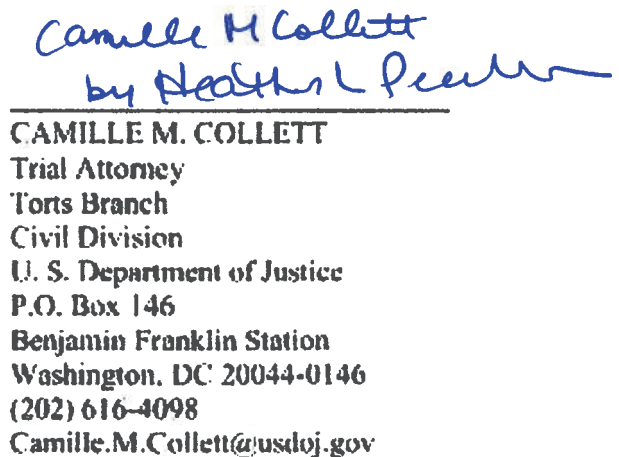 Camille M Collett
by Heather L
CAMILLE M. COLLETT
Trial Attorney
Torts Branch
Civil Division
U. S. Department of Justice
P.O. Box 146
Benjamin Franklin Station
Washington, DC 20044-0146
(202) 616-4098
Camille.M.Collett@usdoj.gov